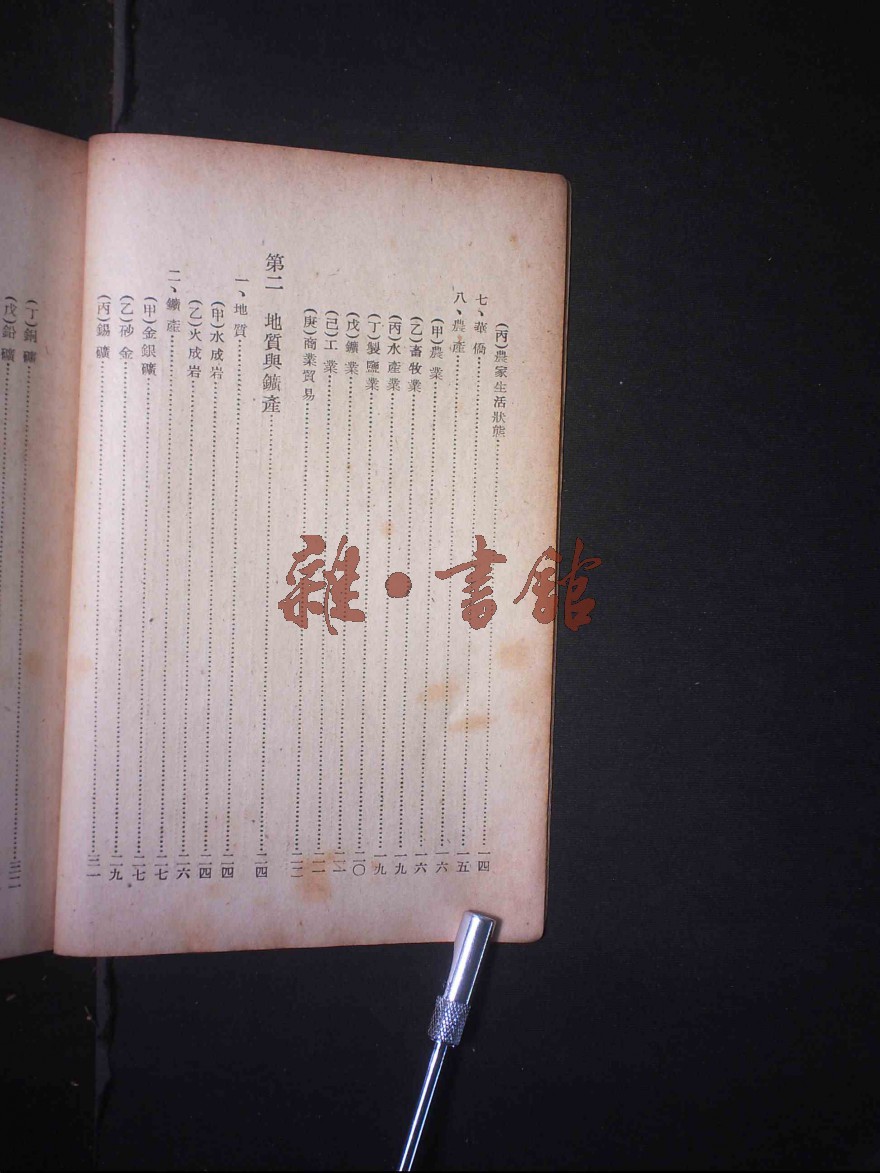 (丙)農家生活狀態……一四
七、華僑……一五
八、農產……一六
(甲)農業……一六
(乙)畜牧業……一九
(丙)水產業……一九
(丁)製鹽業……二〇
(戊)鑛業……二一
(己)工業……二一
(庚)商業貿易……二二
第二 地質與鑛產……二四
一、地質……二四
(甲)水成岩……二四
(乙)火成岩……二六
二、鑛產……二七
(甲)金銀礦……二七
(乙)砂金……二九
(丙)錫礦……三一
(丁)銅礦……三二
(戊)鉛礦
雜·書館